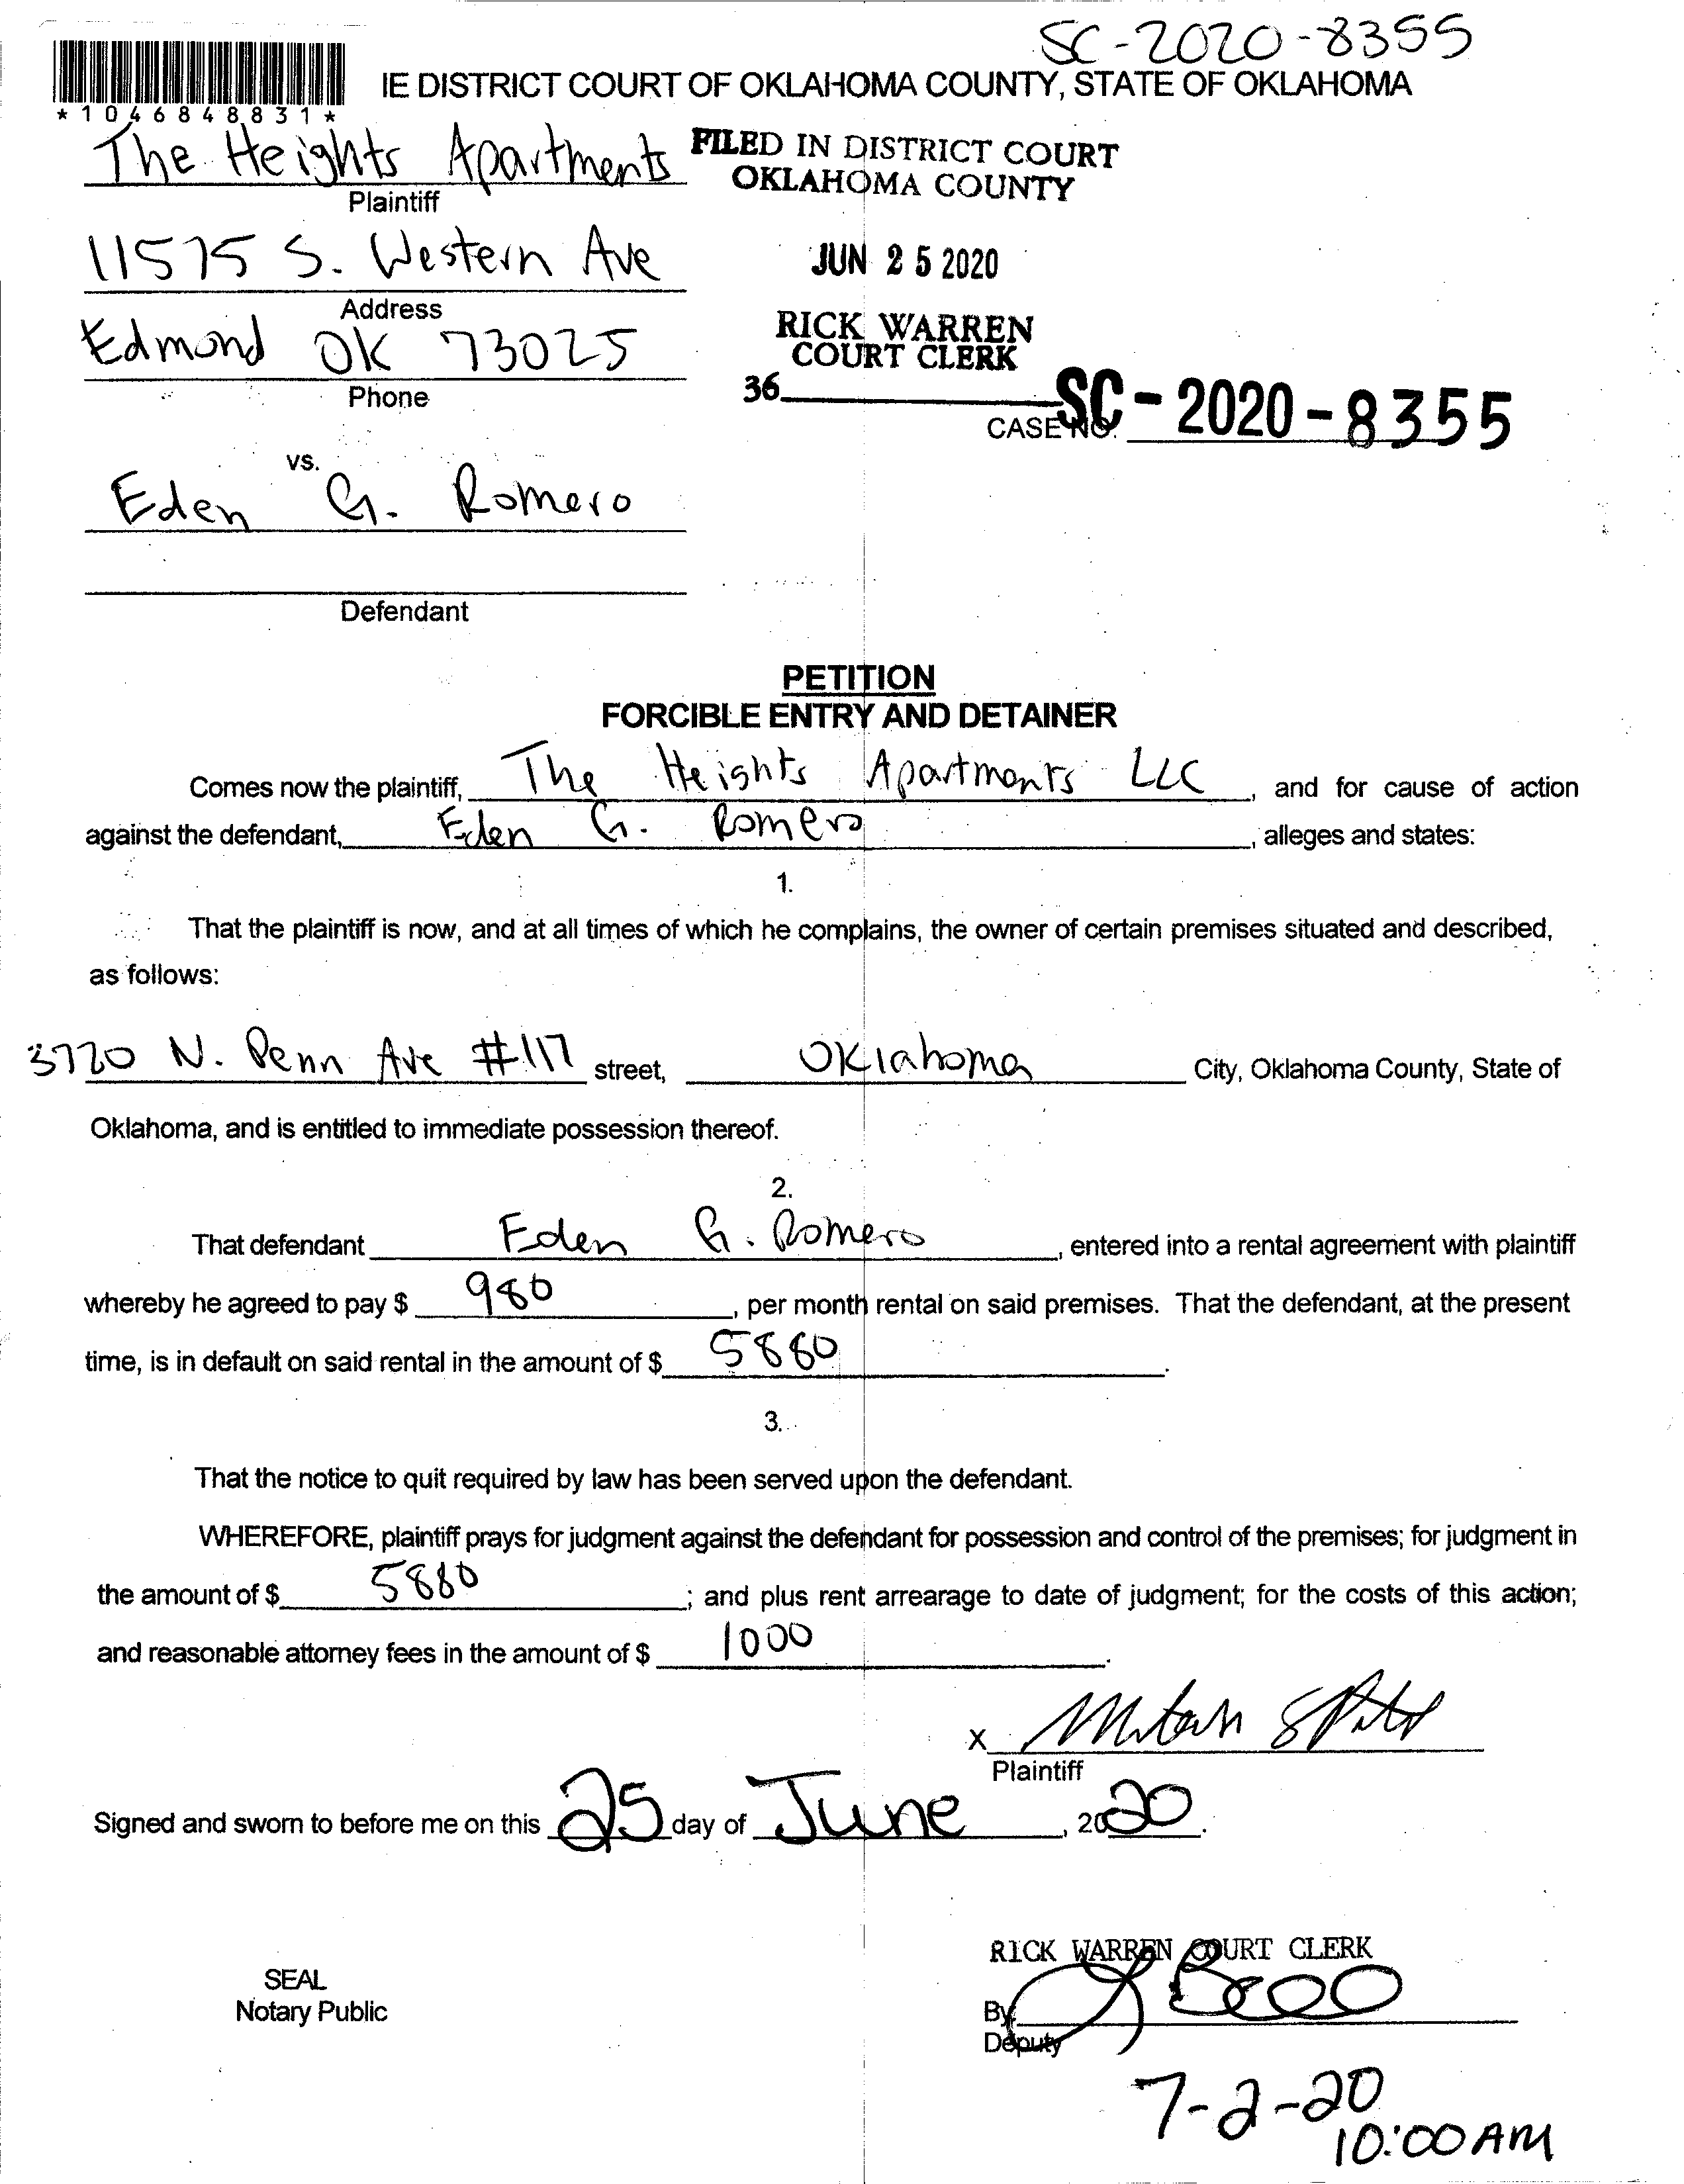 SC-2020-8355
IE DISTRICT COURT OF OKLAHOMA COUNTY, STATE OF OKLAHOMA
*1046848831*
The Heights Apartments
Plaintiff
FILED IN DISTRICT COURT
OKLAHOMA COUNTY
11575 S. Western Ave
Address
JUN 25 2020
Edmond OK 73025
Phone
RICK WARREN
COURT CLERK
36
CASE NO. SC-2020-8355
vs.
Eden G. Romero
Defendant
PETITION
FORCIBLE ENTRY AND DETAINER
Comes now the plaintiff, The Heights Apartments LLC, and for cause of action
against the defendant, Eden G. Romero, alleges and states:
1.
That the plaintiff is now, and at all times of which he complains, the owner of certain premises situated and described,
as follows:
3720 N. Penn Ave #117 street, Oklahoma City, Oklahoma County, State of
Oklahoma, and is entitled to immediate possession thereof.
2.
That defendant Eden G. Romero, entered into a rental agreement with plaintiff
whereby he agreed to pay $ 980, per month rental on said premises. That the defendant, at the present
time, is in default on said rental in the amount of $ 5880.
3.
That the notice to quit required by law has been served upon the defendant.
WHEREFORE, plaintiff prays for judgment against the defendant for possession and control of the premises; for judgment in
the amount of $ 5880; and plus rent arrearage to date of judgment; for the costs of this action;
and reasonable attorney fees in the amount of $ 1000.
X
Plaintiff
Signed and sworn to before me on this 25 day of June, 2020.
RICK WARREN COURT CLERK
SEAL
Notary Public
By
Deputy
7-2-20
10:00 AM